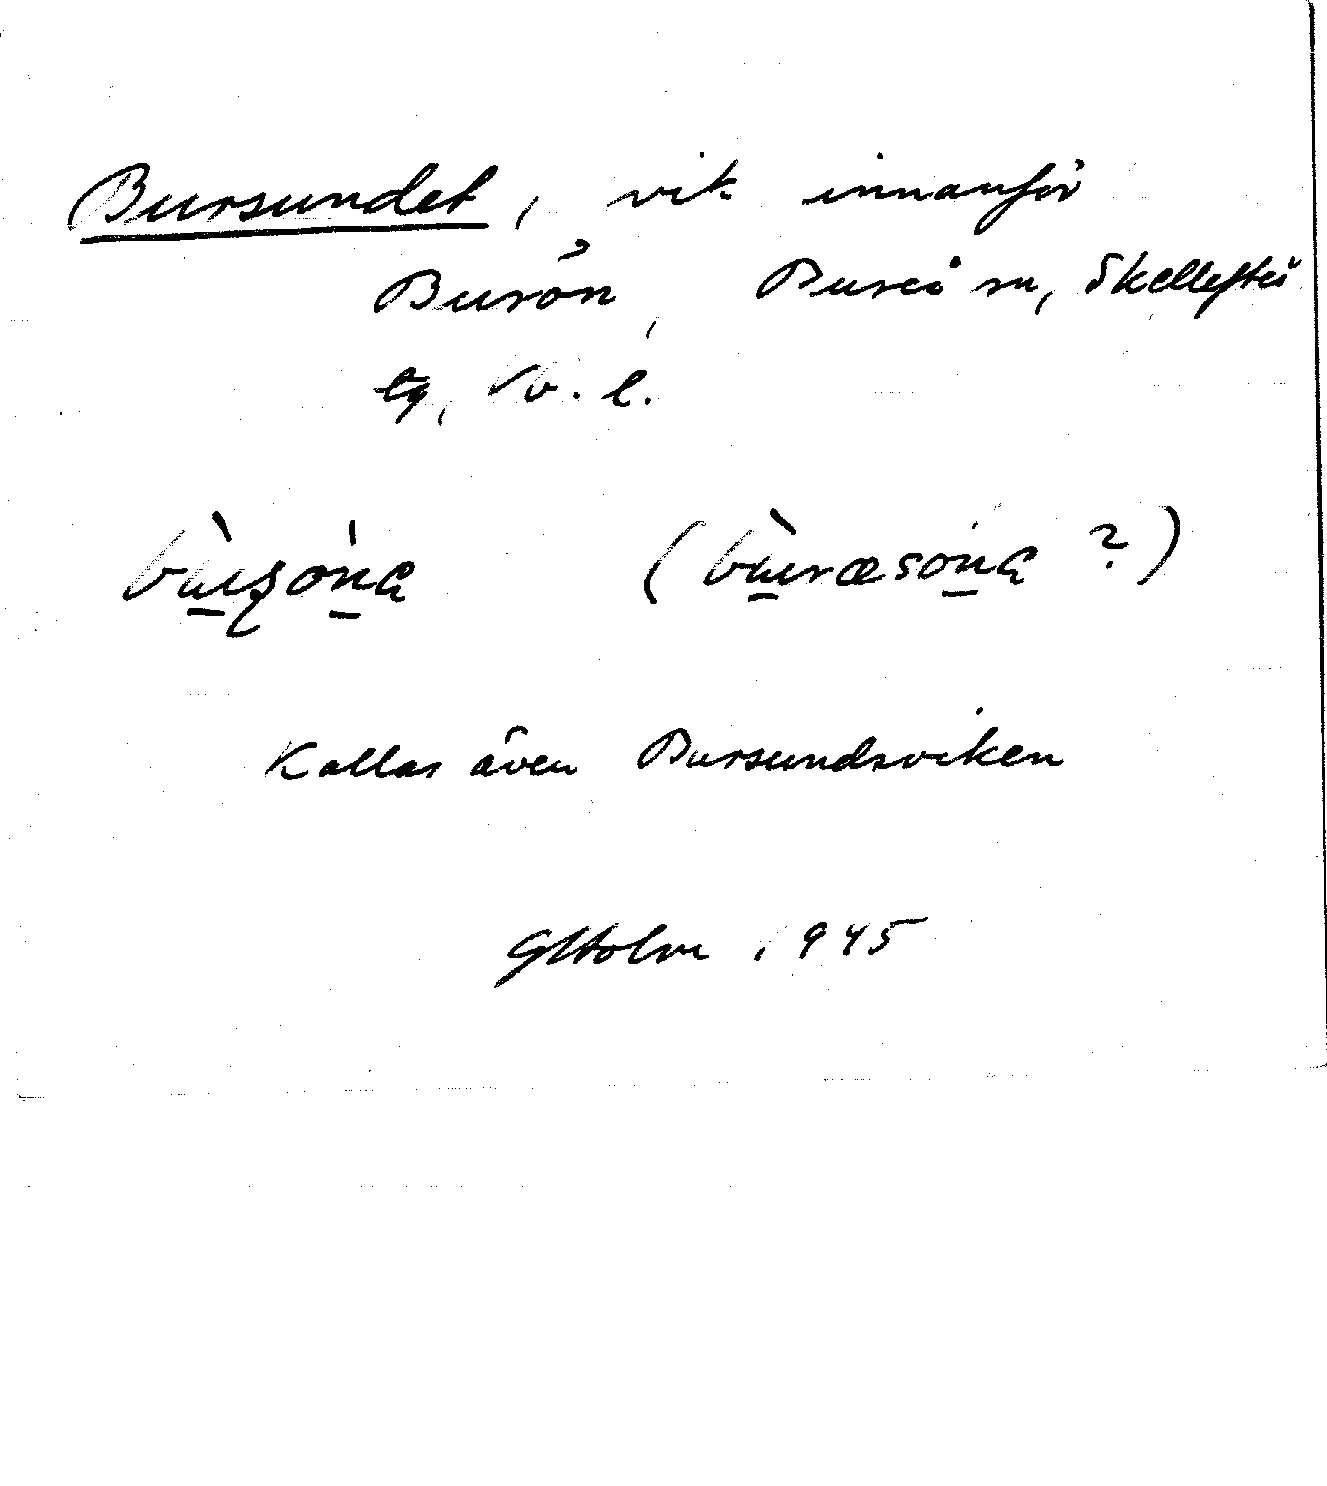 Bursundet, vik innanför
Burön, Bureå sn, Skellefteå
tg, Vb. l.
bùrsón (bùræson ?)
Kallas även Bursundsviken
GHolm 1945